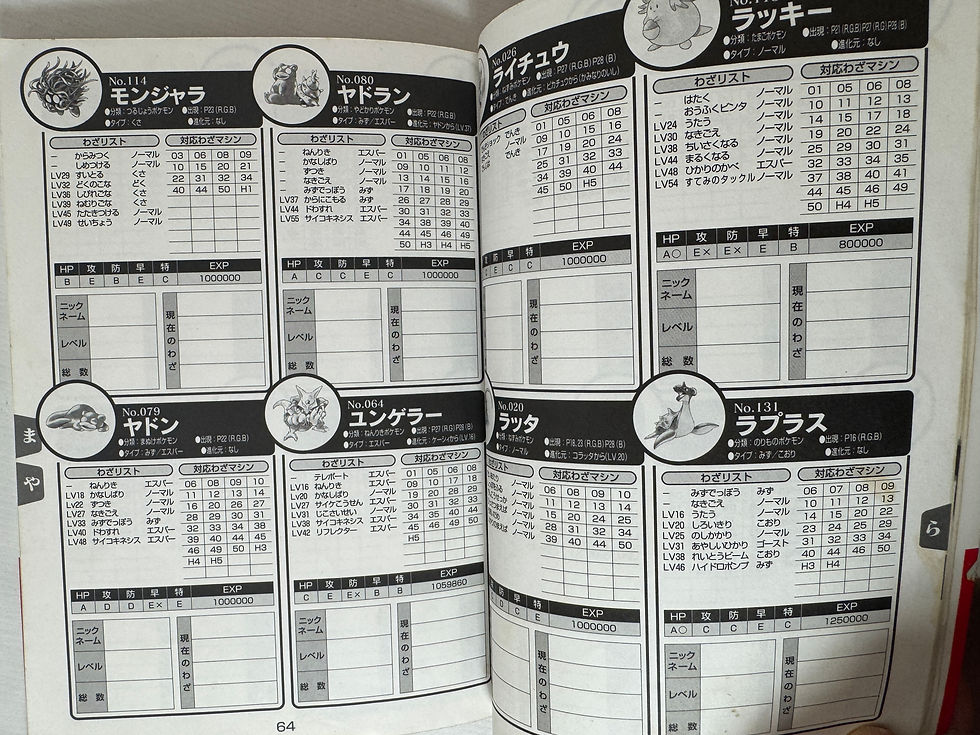 No.114
モンジャラ
●分類：つるじょうポケモン ●出現：P23 (R.G.B)
●タイプ：くさ ●進化元：なし
わざリスト 対応わざマシン
― からみつく ノーマル
― しめつける ノーマル
LV29 すいとる くさ
LV32 どくのこな どく
LV36 しびれごな くさ
LV39 ねむりごな くさ
LV45 たたきつける ノーマル
LV49 せいちょう ノーマル
03 06 08 09
10 15 20 21
22 31 32 34
40 44 50 H1
HP 攻 防 早 特 EXP
B E B E C 1000000
ニックネーム
レベル
総数
現在のわざ
No.080
ヤドラン
●分類：やどかりポケモン ●出現：P22 (R.G.B)
●タイプ：みず／エスパー ●進化元：ヤドンから(LV.37)
わざリスト 対応わざマシン
― ねんりき エスパー
― かなしばり ノーマル
― ずつき ノーマル
― なきごえ ノーマル
― みずでっぽう みず
LV37 からにこもる みず
LV44 ドわすれ エスパー
LV55 サイコキネシス エスパー
01 05 06 08
09 10 11 12
13 14 15 16
17 18 19 20
26 27 28 29
30 31 32 33
34 38 39 40
44 45 46 49
50 H3 H4 H5
HP 攻 防 早 特 EXP
A C C E C 1000000
ニックネーム
レベル
総数
現在のわざ
No.079
ヤドン
●分類：まぬけポケモン ●出現：P22 (R.G.B)
●タイプ：みず／エスパー ●進化元：なし
わざリスト 対応わざマシン
― ねんりき エスパー
LV18 かなしばり ノーマル
LV22 ずつき ノーマル
LV27 なきごえ ノーマル
LV33 みずでっぽう みず
LV40 ドわすれ エスパー
LV48 サイコキネシス エスパー
06 08 09 10
11 12 13 14
16 20 26 27
28 29 30 31
32 33 34 38
39 40 44 45
46 49 50 H3
H4 H5
HP 攻 防 早 特 EXP
A D D E× E 1000000
ニックネーム
レベル
総数
現在のわざ
No.064
ユンゲラー
●分類：ねんりきポケモン ●出現：P27 (R.G) P28 (B)
●タイプ：エスパー ●進化元：ケーシィから(LV.16)
わざリスト 対応わざマシン
― テレポート エスパー
LV16 ねんりき エスパー
LV20 かなしばり ノーマル
LV27 サイケこうせん エスパー
LV31 じこさいせい ノーマル
LV38 サイコキネシス エスパー
LV42 リフレクター エスパー
01 05 06 08
09 10 17 18
19 20 28 29
30 31 32 33
34 35 40 44
45 46 49 50
H5
HP 攻 防 早 特 EXP
C E E× B B 1059860
ニックネーム
レベル
総数
現在のわざ
ま
や
64
No.026
ライチュウ
●分類：ねずみポケモン ●出現：P27 (R.G.B) P28 (B)
タイプ：でんき ●進化元：ピカチュウから(かみなりのいし)
対応わざマシン
でんき
でんき
01 05 06 08
09 10 15 16
17 19 20 24
25 31 32 33
34 39 40 44
45 50 H5
EXP
E C C 1000000
現在のわざ
ラッキー
●分類：たまごポケモン ●出現：P21 (R.G.B) P27 (R.G) P28 (B)
●タイプ：ノーマル ●進化元：なし
わざリスト 対応わざマシン
― はたく ノーマル
― おうふくビンタ ノーマル
LV24 うたう ノーマル
LV30 なきごえ ノーマル
LV38 ちいさくなる ノーマル
LV44 まるくなる ノーマル
LV48 ひかりのかべ エスパー
LV54 すてみのタックル ノーマル
01 05 06 08
10 11 12 13
14 15 17 18
19 20 22 24
25 29 30 31
32 33 34 35
37 38 40 41
44 45 46 49
50 H4 H5
HP 攻 防 早 特 EXP
A○ E× E× E B 800000
ニックネーム
レベル
総数
現在のわざ
No.020
ラッタ
●分類：ねずみポケモン ●出現：P18, 23 (R.G.B) P28 (B)
●タイプ：ノーマル ●進化元：コラッタから(LV.20)
対応わざマシン
ノーマル
ノーマル
ノーマル
ノーマル
ノーマル
06 08 09 10
11 12 13 14
15 20 24 25
28 31 32 34
39 40 44 50
EXP
D C E 1000000
現在のわざ
No.131
ラプラス
●分類：のりものポケモン ●出現：P16 (R.G.B)
●タイプ：みず／こおり ●進化元：なし
わざリスト 対応わざマシン
― みずでっぽう みず
― なきごえ ノーマル
LV16 うたう ノーマル
LV20 しろいきり こおり
LV25 のしかかり ノーマル
LV31 あやしいひかり ゴースト
LV38 れいとうビーム こおり
LV46 ハイドロポンプ みず
06 07 08 09
10 11 12 13
14 15 20 22
23 24 25 29
31 32 33 34
40 44 46 50
H3 H4
HP 攻 防 早 特 EXP
A○ C C E C 1250000
ニックネーム
レベル
総数
現在のわざ
ら